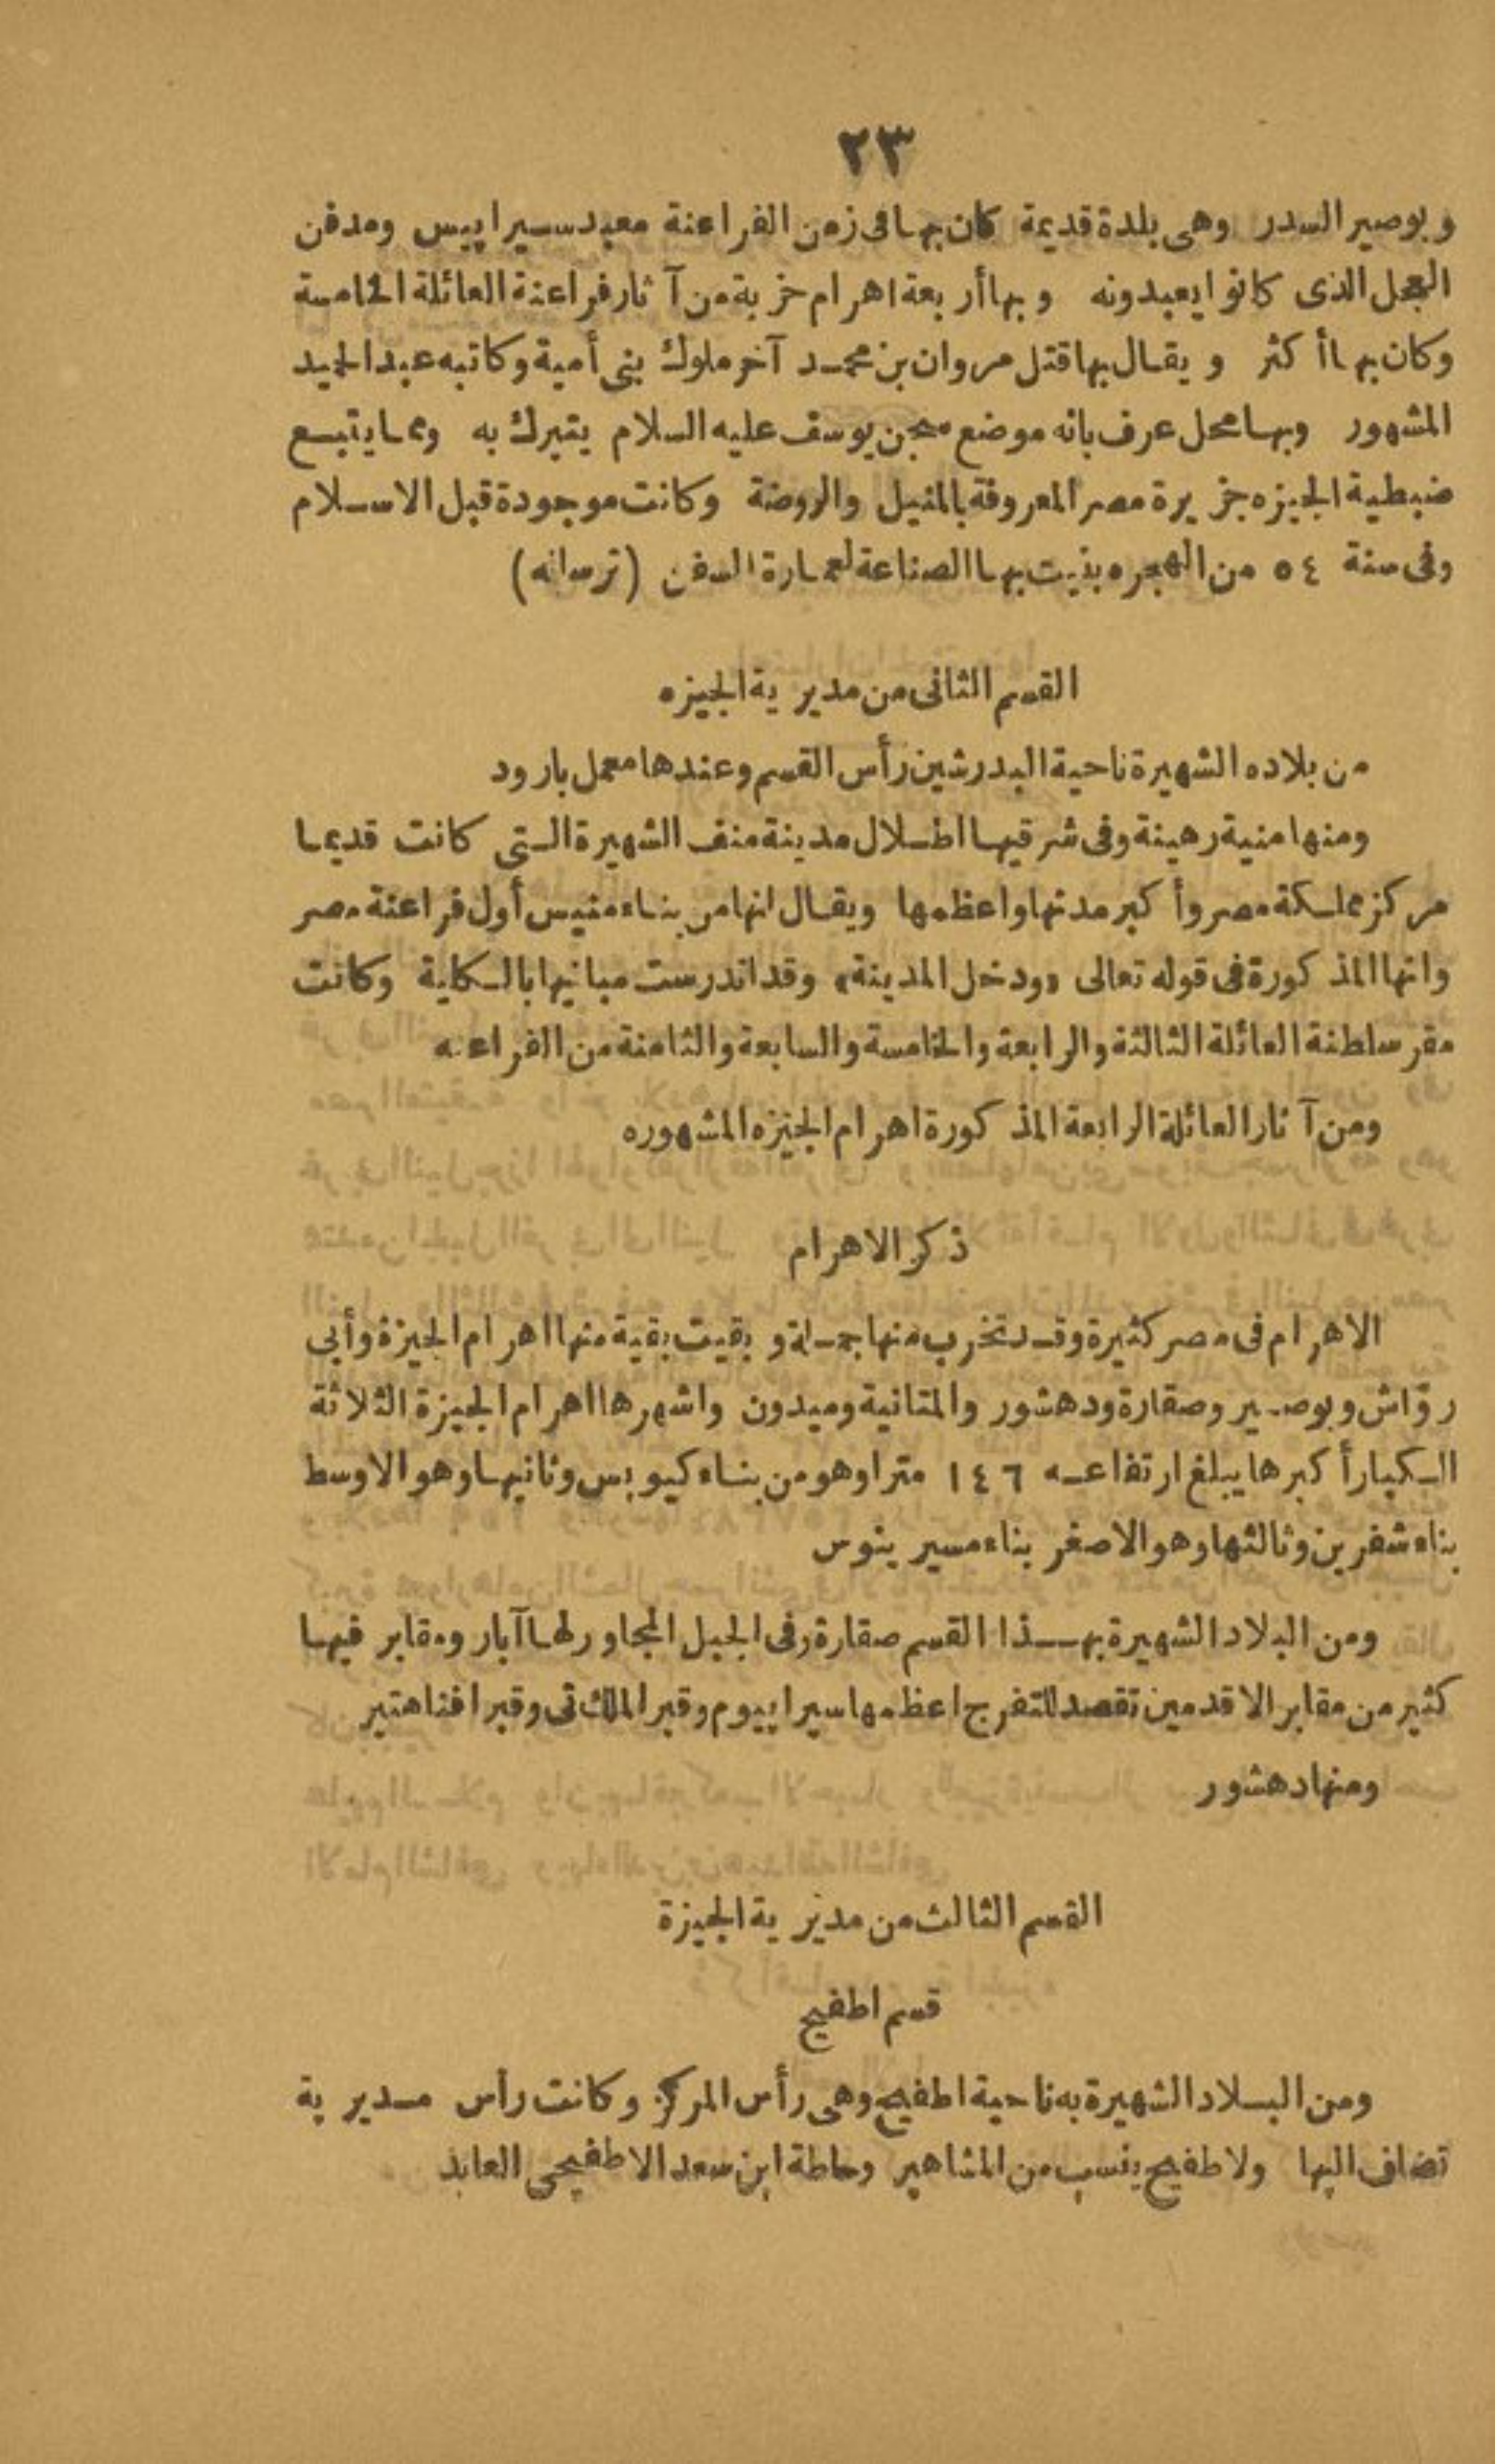 ٢٣
وبوصير السدر وهى بلدة قديمة كان بها فى زمن الفراعنة معبد سيرابيس ومدفن
العجل الذى كانوا يعبدونه وبها أربعة اهرام خربة من آثار فراعنة العائلة الخامسة
وكان بها أكثر ويقال بها قتل مروان بن محمد آخر ملوك بنى أمية وكاتبه عبد الحميد
المشهور وبها محل عرف بانه موضع سجن يوسف عليه السلام يتبرك به ومما يتبع
ضبطية الجيزه جزيرة مصر المعروفة بالمنيل والروضة وكانت موجودة قبل الاسلام
وفى سنة ٥٤ من الهجره بنيت بها الصناعة لعمارة السفن (ترسانه)
القسم الثانى من مديرية الجيزه
من بلاده الشهيرة ناحية البدرشين رأس القسم وعندها معمل بارود
ومنها منية رهينة وفى شرقيها اطلال مدينة منف الشهيرة التى كانت قديما
مركز مملكة مصر وأكبر مدنها واعظمها ويقال انها من بناء منيس أول فراعنة مصر
وانها المذكورة فى قوله تعالى «ودخل المدينة» وقد اندرست مبانيها بالكلية وكانت
مقر سلطنة العائلة الثالثة والرابعة والخامسة والسابعة والثامنة من الفراعنه
ومن آثار العائلة الرابعة المذكورة اهرام الجيزه المشهوره
ذكر الاهرام
الاهرام فى مصر كثيرة وقد تخرب منها جملة وبقيت بقية منها اهرام الجيزة وأبى
روّاش وبوصير وصقارة ودهشور والمتانية وميدون واشهرها اهرام الجيزة الثلاثة
الكبار أكبرها يبلغ ارتفاعه ١٤٦ مترا وهو من بناء كيوبس وثانيها وهو الاوسط
بناء شفرين وثالثها وهو الاصغر بناء مسيرينوس
ومن البلاد الشهيرة بهذا القسم صقارة وفى الجبل المجاور لها آبار ومقابر فيها
كثير من مقابر الاقدمين تقصد للتفرج اعظمها سيرابيوم وقبر الملك تى وقبر افتاهتير
ومنها دهشور
القسم الثالث من مديرية الجيزة
قسم اطفيح
ومن البلاد الشهيرة به ناحية اطفيح وهى رأس المركز وكانت رأس مديرية
تضاف اليها ولاطفيح ينسب من المشاهير وحاطة ابن سعد الاطفيحى العابد